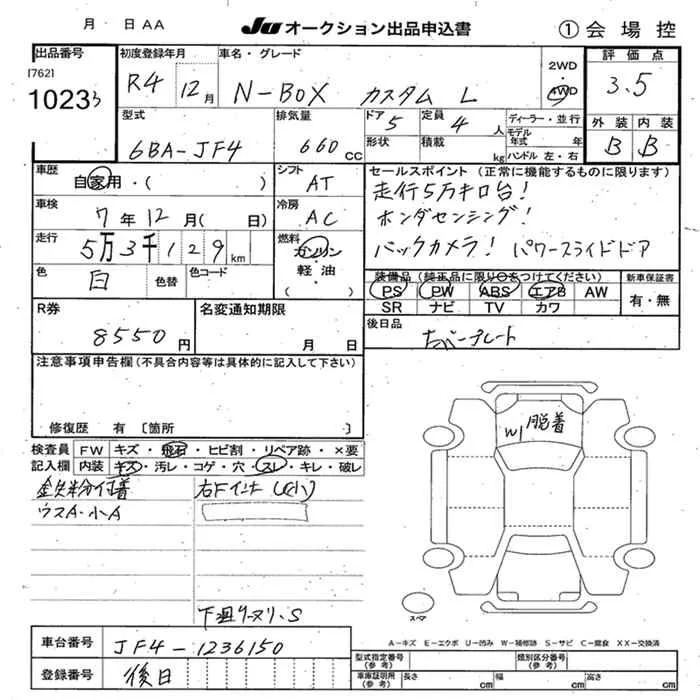 月 日 AA
JU オークション出品申込書
① 会場控
出品番号
[762]
1023
初度登録年月
R4 12月
車名・グレード
N-BOX カスタム L
2WD
・
4WD
評価点
3.5
型式
6BA-JF4
排気量
660 CC
ドア 5
定員 4 人
形状
積載 kg
ディーラー・並行
モデル年式 年
ハンドル 左・右
外装 内装
B B
車歴
自家用・( )
シフト
AT
セールスポイント (正常に機能するものに限ります)
走行5万キロ台!
ホンダセンシング!
バックカメラ! パワースライドドア
車検
7年12月( 日)
冷房
AC
走行
5万3千129km
燃料
ガソリン
・
軽・油
( )
色
白
色替
色コード
装備品 (純正品に限り○をつけてください)
PS PW ABS エアB AW
SR ナビ TV カワ
新車保証書
有・無
R券
8550円
名変通知期限
月 日
後日品
ナンバープレート
注意事項申告欄(不具合内容等は具体的に記入して下さい)
修復歴 有 〔箇所 〕
検査員記入欄
FW キズ・飛石・ヒビ割・リペア跡・×要
内装 キズ・汚レ・コゲ・穴・スレ・キレ・破レ
ウスA・小A
右Fインナー
下廻りサヌリ・S
W1 脱着
スペア
A-キズ E-エクボ U-凹み W-補修跡 S-サビ C-腐食 XX-交換済
車台番号
JF4-1236150
登録番号
後日
型式指定番号
(参考)
類別区分番号
(参考)
車庫証明用
(参考)
長さ cm 幅 cm 高さ cm